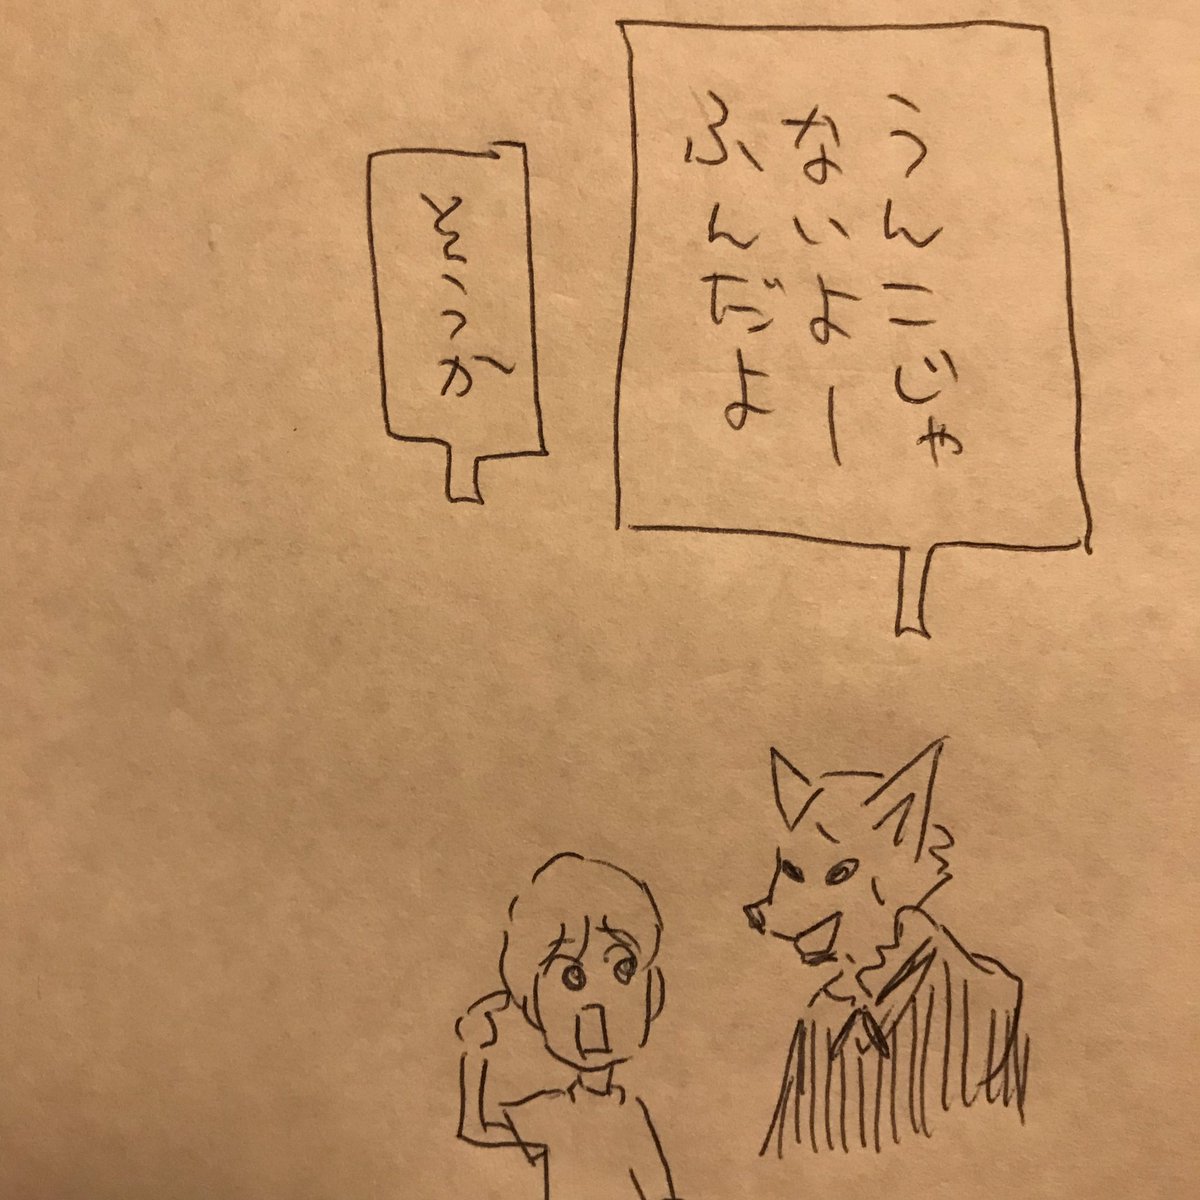 うんこじゃ
ないよー
ふんだよ
そっか